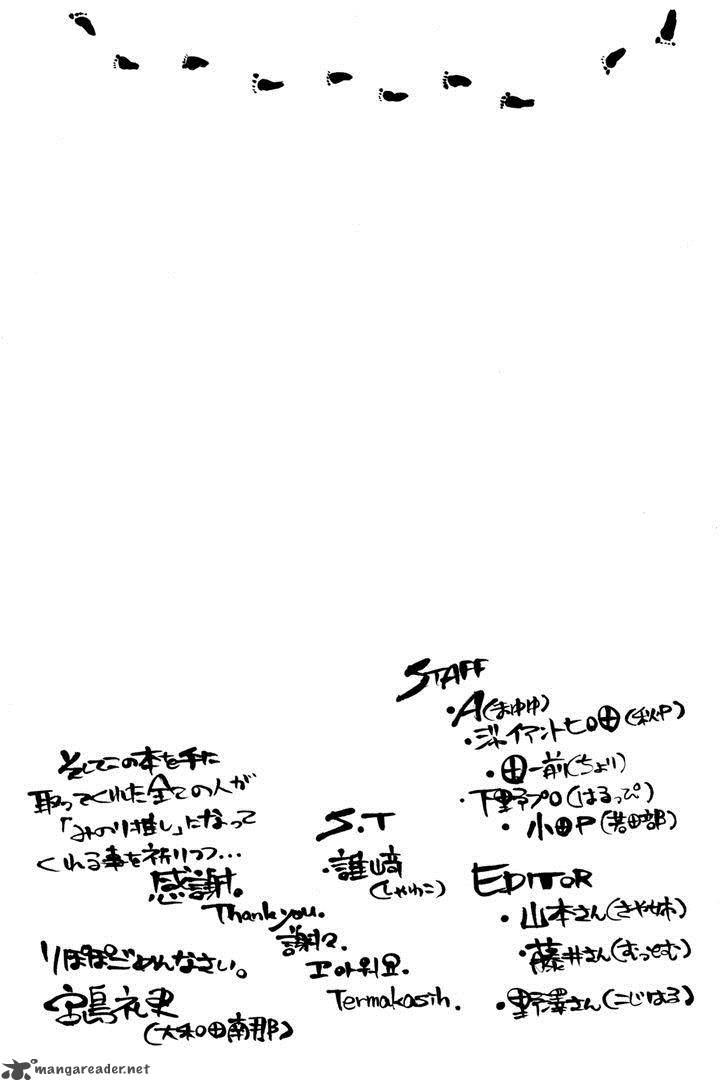 STAFF
・A(まゆゆ)
・ジャイアントヒロ田(秋P)
・田一前(ちより)
・下野プロ(はるっぴ)
・小田P(若田部)
S.T
・譃崎
(しゃわこ)
EDITOR
・山本さん(さや姉)
・藤井さん(むっとむ)
・野澤さん(こじはる)
そしてこの本を手に
取ってくれた全ての人が
「みのり推し」になって
くれる事を祈りつつ…
感謝。
Thank you.
謝々.
고마워요.
Termakasih.
りぽぽごめんなさい。
宮島礼吏
(大和田南那)
mangareader.net